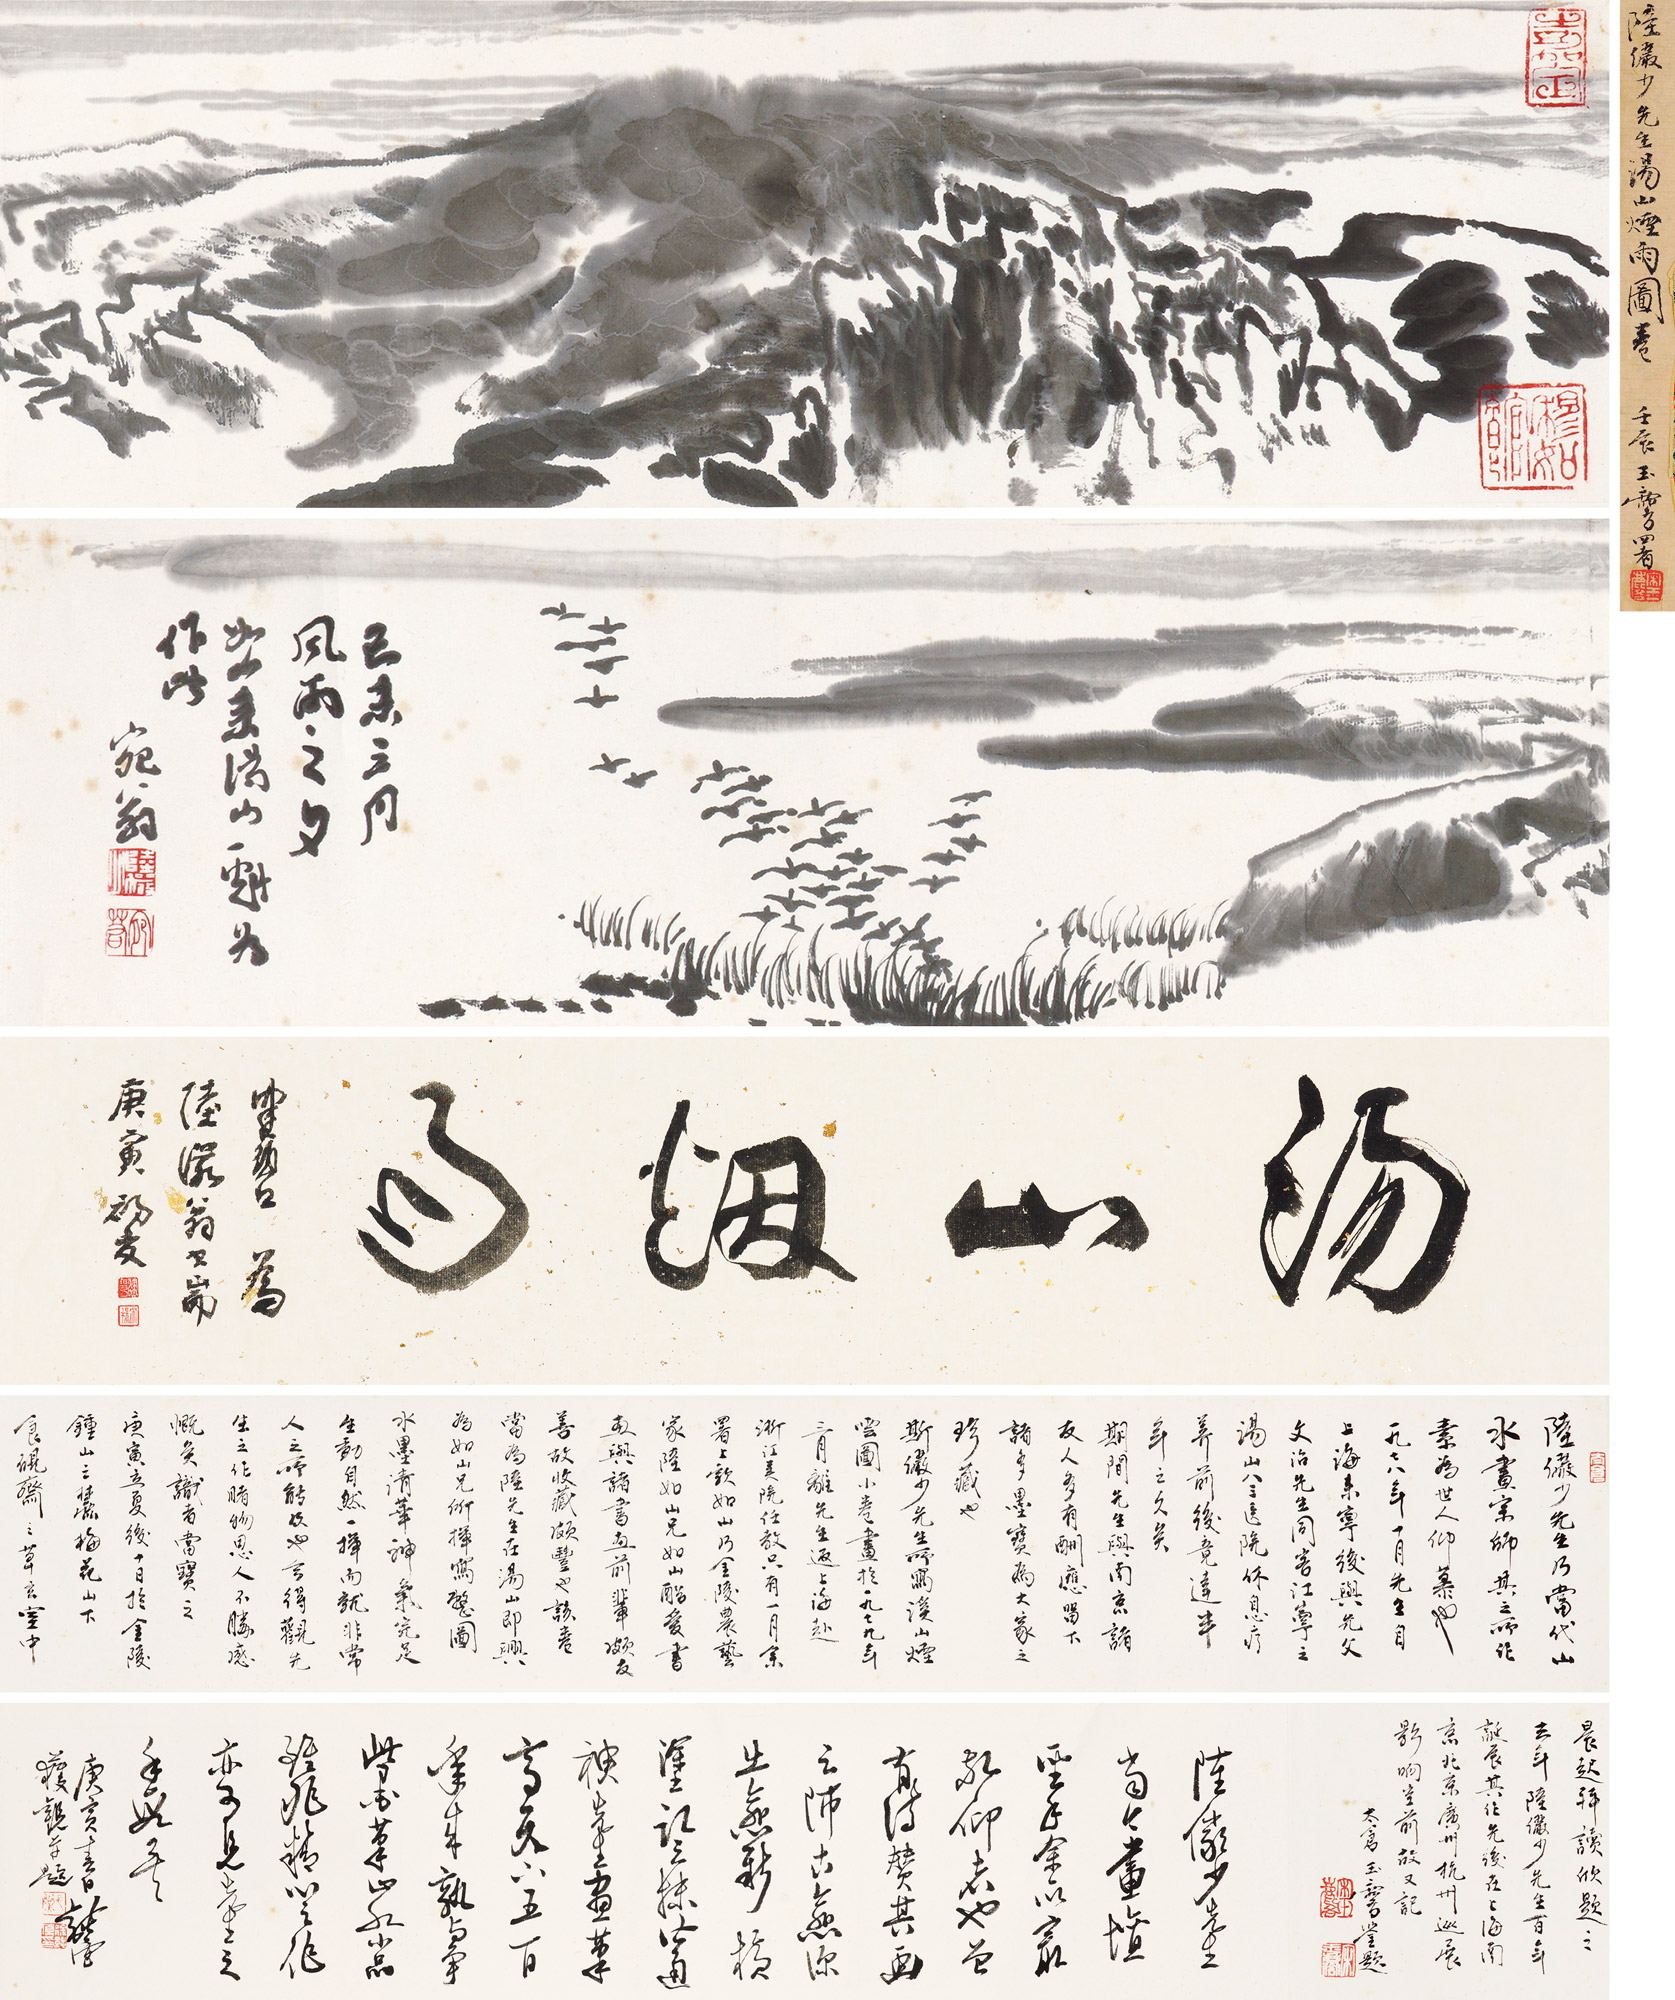 陸儼少先生湯山煙雨圖卷
壬辰 玉麐署
嘉定
穆如館
己未三月
風雨之夕
如山兄来湯山一聚為
作此
宛翁
湯山烟雨
陸儼翁
庚寅
陸儼少先生乃當代山
水畫宗師其之所作
素為世人仰慕也
一九七八年十月先生自
上海来寧後與先父
文治先生同客江寧之
湯山八三醫院休息疗
养前後竟達半
年之久矣
期間先生與南京諸
友人多有酬應留下
諸多墨寶為大家之
珍藏也
斯儼少先生所寫溪山煙
雲圖小卷畫於一九七九年
三月離先生返上海赴
浙江美院任教只有一月余
署上款如山乃金陵農藝
家陸如山兄如山酷愛書
画與諸書画前輩頗友
善故收藏頗豐也該卷
當為陸先生在湯山即興
為如山兄所揮寫整圖
水墨清華神氣完足
生動自然一揮而就非常
人之所能及也今得觀先
生之作睹物思人不勝感
慨矣識者當寶之
庚寅立夏後十日於金陵
鍾山之麓梅花山下
食硯齋之草玄室中
晨起拜讀欣題之
去年陸儼少先生百年
誕辰其作先後在上海南
京北京廣州杭州巡展
影响空前故又記
太倉玉麐鑒題
陸儼少先生
當今畫壇
聖手余所最
敬仰者也曾
有詩贊其画
云師古無深
生無彩 積
墨
神先生画筆
高天下五百
年来孰与争
此卷筆山水小品
雖非精心之作
亦可見先生之
手段矣
庚寅春日
獲觀并題